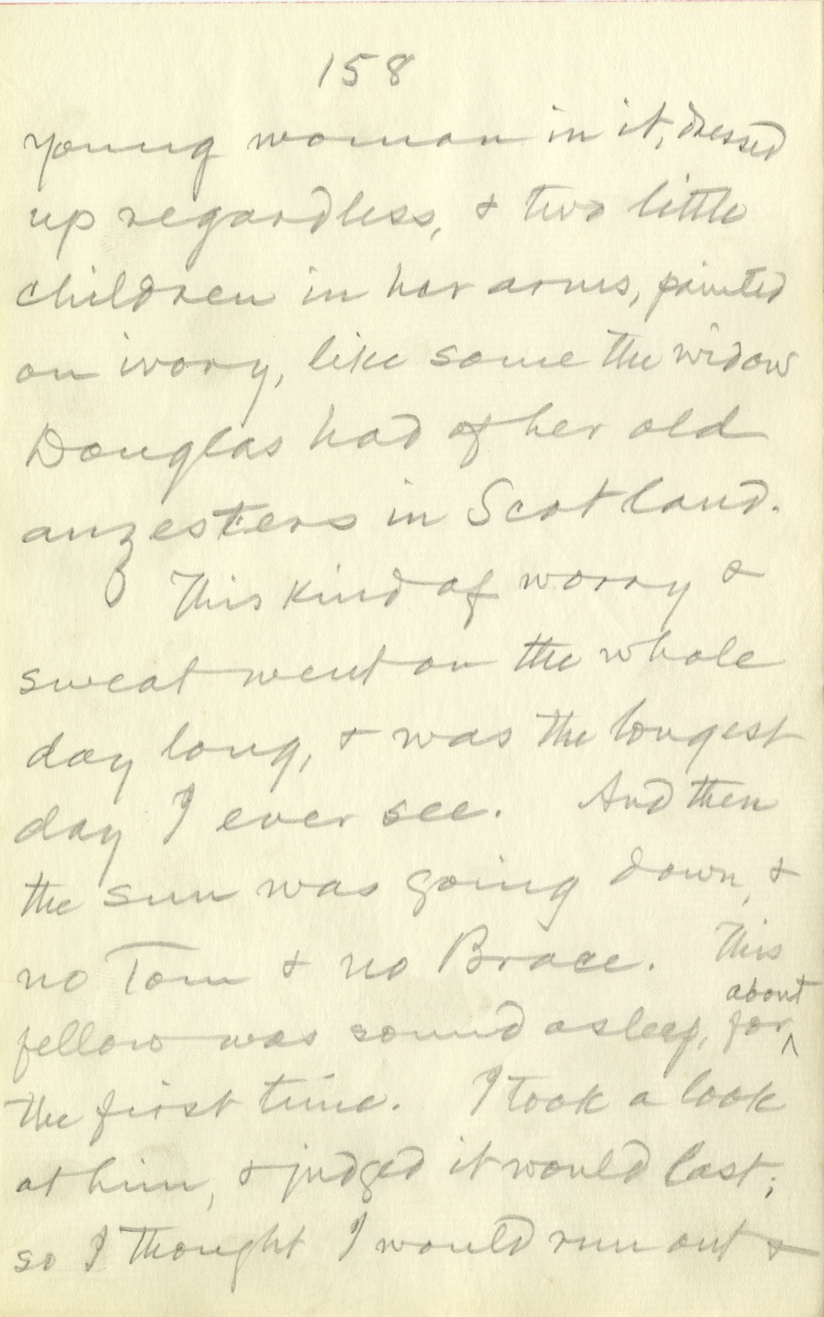 158
young woman in it, dressed
up regardless, & two little
children in her arms, painted
on ivory, like some the widow
Douglas had of her old
anzesters in Scotland.
This kind of worry &
sweat went on the whole
day long, & was the longest
day I ever see. And then
the sun was going down, &
no Tom & no Brace. This
about
fellow was sound asleep, for ^
the first time. I took a look
at him, & judged it would last;
so I thought I would run out &